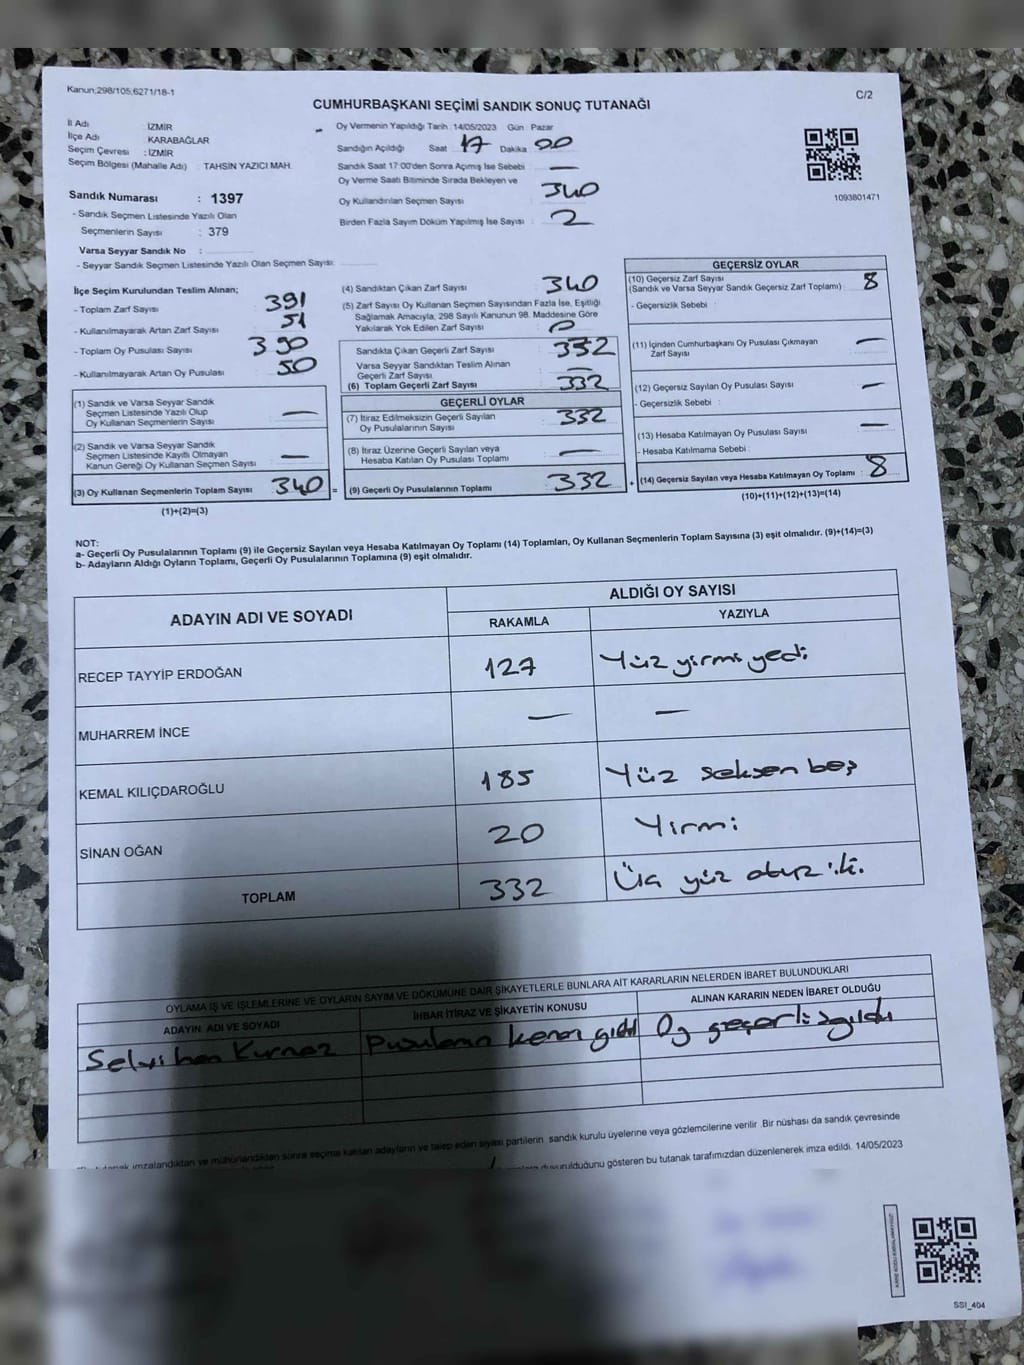 Kanun;298/105,6271/18-1
C/2
CUMHURBAŞKANI SEÇİMİ SANDIK SONUÇ TUTANAĞI
İl Adı : İZMİR
İlçe Adı KARABAĞLAR
Seçim Çevresi : İZMİR
Seçim Bölgesi (Mahalle Adı) : TAHSİN YAZICI MAH.
Sandık Numarası : 1397
- Sandık Seçmen Listesinde Yazılı Olan
Seçmenlerin Sayısı : 379
Varsa Seyyar Sandık No :
- Seyyar Sandık Seçmen Listesinde Yazılı Olan Seçmen Sayısı:
Oy Vermenin Yapıldığı Tarih :14/05/2023 Gün Pazar
Sandığın Açıldığı Saat 17 Dakika 00
Sandık Saat 17:00'den Sonra Açımış İse Sebebi : —
Oy Verme Saati Bitiminde Sırada Bekleyen ve
Oy Kullandırılan Seçmen Sayısı : 340
Birden Fazla Sayım Döküm Yapılmış İse Sayısı : 2
1093801471
İlçe Seçim Kurulundan Teslim Alınan;
- Toplam Zarf Sayısı : 391
- Kullanılmayarak Artan Zarf Sayısı : 51
- Toplam Oy Pusulası Sayısı : 390
- Kullanılmayarak Artan Oy Pusulası : 50
(1) Sandık ve Varsa Seyyar Sandık
Seçmen Listesinde Yazılı Olup
Oy Kullanan Seçmenlerin Sayısı : —
(2) Sandık ve Varsa Seyyar Sandık
Seçmen Listesinde Kayıtlı Olmayan
Kanun Gereği Oy Kullanan Seçmen Sayısı : —
(3) Oy Kullanan Seçmenlerin Toplam Sayısı : 340 =
(1)+(2)=(3)
(4) Sandıktan Çıkan Zarf Sayısı : 340
(5) Zarf Sayısı Oy Kullanan Seçmen Sayısından Fazla İse, Eşitliği
Sağlamak Amacıyla, 298 Sayılı Kanunun 98. Maddesine Göre
Yakılarak Yok Edilen Zarf Sayısı : 0
Sandıkta Çıkan Geçerli Zarf Sayısı : 332
Varsa Seyyar Sandıktan Teslim Alınan
Geçerli Zarf Sayısı : —
(6) Toplam Geçerli Zarf Sayısı : 332
GEÇERLİ OYLAR
(7) İtiraz Edilmeksizin Geçerli Sayılan
Oy Pusulalarının Sayısı : 332
(8) İtiraz Üzerine Geçerli Sayılan veya
Hesaba Katılan Oy Pusulası Toplamı : —
(9) Geçerli Oy Pusulalarının Toplamı : 332 +
GEÇERSİZ OYLAR
(10) Geçersiz Zarf Sayısı
(Sandık ve Varsa Seyyar Sandık Geçersiz Zarf Toplamı) : 8
- Geçersizlik Sebebi :
(11) İçinden Cumhurbaşkanı Oy Pusulası Çıkmayan
Zarf Sayısı : —
(12) Geçersiz Sayılan Oy Pusulası Sayısı : —
- Geçersizlik Sebebi :
(13) Hesaba Katılmayan Oy Pusulası Sayısı : —
- Hesaba Katılmama Sebebi :
(14) Geçersiz Sayılan veya Hesaba Katılmayan Oy Toplamı : 8
(10)+(11)+(12)+(13)=(14)
NOT:
a- Geçerli Oy Pusulalarının Toplamı (9) ile Geçersiz Sayılan veya Hesaba Katılmayan Oy Toplamı (14) Toplamları, Oy Kullanan Seçmenlerin Toplam Sayısına (3) eşit olmalıdır. (9)+(14)=(3)
b- Adayların Aldığı Oyların Toplamı, Geçerli Oy Pusulalarının Toplamına (9) eşit olmalıdır.
ADAYIN ADI VE SOYADI
ALDIĞI OY SAYISI
RAKAMLA YAZIYLA
RECEP TAYYİP ERDOĞAN 127 Yüz yirmi yedi
MUHARREM İNCE — —
KEMAL KILIÇDAROĞLU 185 Yüz seksen beş
SİNAN OĞAN 20 Yirmi
TOPLAM 332 Üç yüz otuz iki
OYLAMA İŞ VE İŞLEMLERİNE VE OYLARIN SAYIM VE DÖKÜMÜNE DAİR ŞİKAYETLERLE BUNLARA AİT KARARLARIN NELERDEN İBARET BULUNDUKLARI
ADAYIN ADI VE SOYADI İHBAR İTİRAZ VE ŞİKAYETİN KONUSU ALINAN KARARIN NEDEN İBARET OLDUĞU
Oy geçerli sayıldı
imzalandıktan ve mühürlendikten sonra seçime katılan adayların ve talep eden siyasi partilerin sandık kurulu üyelerine veya gözlemcilerine verilir. Bir nüshası da sandık çevresinde
duyurulduğunu gösteren bu tutanak tarafımızdan düzenlenerek imza edildi. 14/05/2023
SSI_404